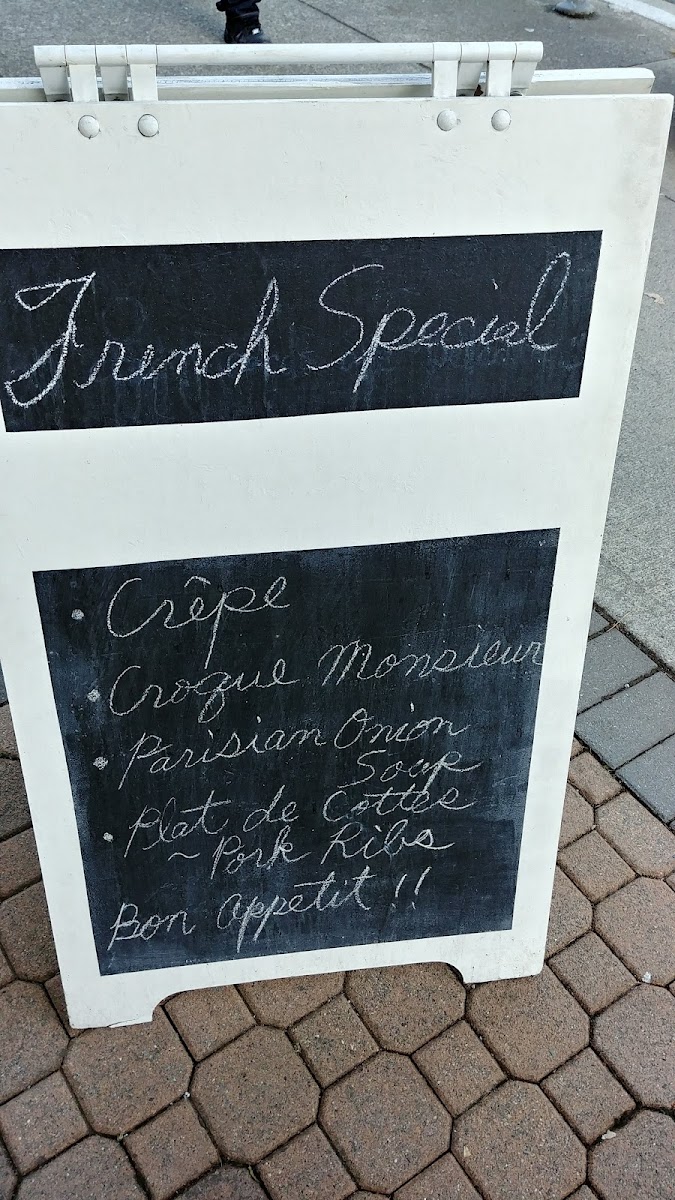 French Special
• Crêpe
• Croque Monsieur
• Parisian Onion
Soup
• Plat de Cottes
~ Pork Ribs
Bon Appetit !!